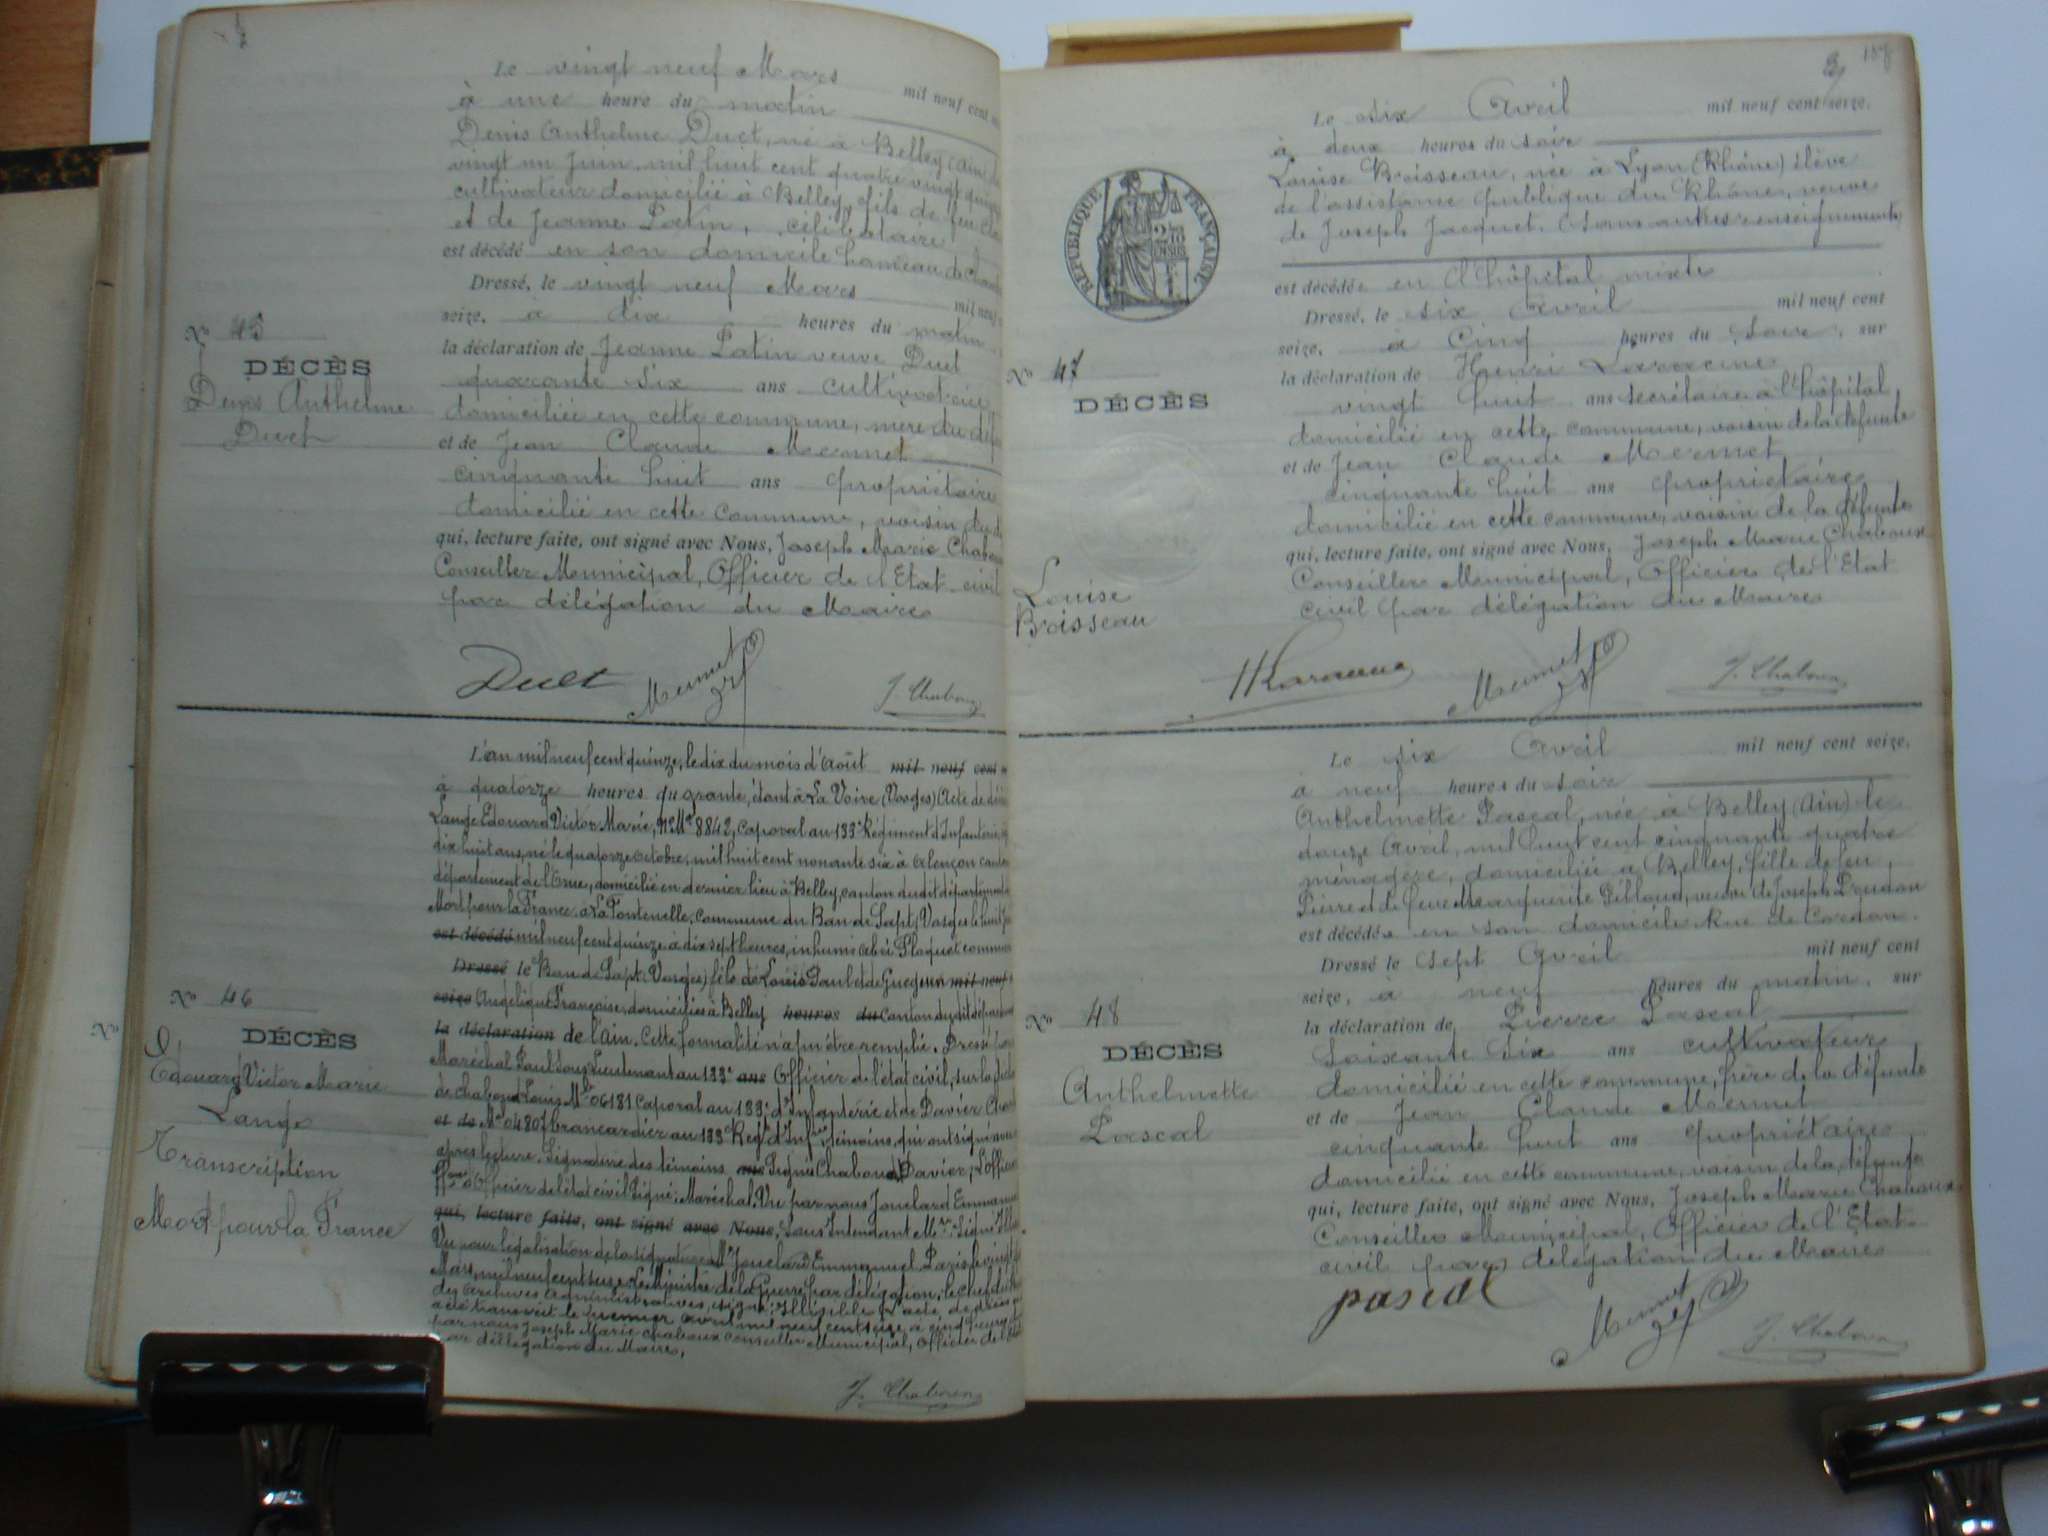 Le vingt neuf Mars
à une heure du matin mil neuf cent
Denis Anthelme Duet, né à Belley (Ain) le
vingt un Juin mil huit cent quatre vingt
cultivateur domicilié à Belley, fils de feu
et de Jeanne Patin, célibataire
est décédé en son domicile hameau de
Dressé, le vingt neuf Mars mil neuf
seize, à dix heures du matin
N° 45
DÉCÈS
Denis Anthelme
Duet
la déclaration de Jeanne Patin veuve Duet
quarante six ans cultivatrice
domiciliée en cette commune, mère du
et de Jean Claude Mermet
cinquante huit ans propriétaire
domicilié en cette commune, voisin du
qui, lecture faite, ont signé avec Nous, Joseph Marie
Conseiller Municipal, Officier de l'Etat civil
par délégation du Maire
Duet Mermet J. Chaboux
L'an mil neuf cent quinze, le dix du mois d'Août mil neuf cent
à quatorze heures quarante, étant à La Voivre (Vosges) Acte de
Lange Edouard Victor Marie, N° Mle 8842, Caporal au 133e Régiment d'Infanterie,
dix huit ans, né le quatorze octobre, mil huit cent nonante six à Alençon
département de l'Orne, domicilié en dernier lieu à Belley, canton dudit département
Mort pour la France à La Fontenelle, commune du Ban de Sapt, Vosges le huit
est décédé mil neuf cent quinze à dix sept heures, inhumé
Dressé le Ban de Sapt Vosges) fils de Louis Paul et de mil neuf
seize Angélique Françoise, domiciliés à Belley heures du Canton dudit
la déclaration de l'Ain. Cette formalité n'a pu être remplie. Dressé
N° 46
DÉCÈS
Edouard Victor Marie
Lange
Transcription
Mort pour la France
Maréchal Paul Sous Lieutenant au 133e ans Officier de l'état civil, sur la
de Chaboud Louis Mle 06181 Caporal au 133e d'Infanterie et de Davier
et de Mle 04807 brancardier au 133e Régt d'Infie, témoins, qui ont signé
après lecture. Signature des témoins ans Signé Chaboud Davier, L'officier
Officier de l'état civil Signé: Maréchal. Vu par nous Jouclard Emmanuel
qui, lecture faite, ont signé avec Nous, Sous Intendant Mre Signé
Vu pour légalisation de la signature de Mr Jouclard Emmanuel Paris le
Mars, mil neuf cent seize Le Ministre de la Guerre par délégation, le chef
des Archives administratives, signé: Illisible L'acte de décès
a été transcrit le premier avril mil neuf cent seize à cinq heures
par nous Joseph Marie Chaboux Conseiller Municipal, Officier de
par délégation du Maire,
J. Chaboux
Le six Avril mil neuf cent seize,
à deux heures du soir
Louise Boisseau, née à Lyon (Rhône) élève
de l'assistance publique du Rhône, veuve
de Joseph Jacquet. Sans autres renseignements
est décédée en l'hôpital mixte
Dressé, le six Avril mil neuf cent
seize, à cinq heures du soir, sur
RÉPUBLIQUE FRANÇAISE
N° 47
DÉCÈS
Louise
Boisseau
la déclaration de Henri
vingt huit ans secrétaire à l'hôpital
domicilié en cette commune, voisin de la défunte
et de Jean Claude Mermet
cinquante huit ans propriétaire
domicilié en cette commune, voisin de la défunte
qui, lecture faite, ont signé avec Nous, Joseph Marie Chaboux
Conseiller Municipal, Officier de l'Etat
civil par délégation du Maire
Mermet J. Chaboux
Le six Avril mil neuf cent seize,
à neuf heures du soir
Anthelmette Pascal, née à Belley (Ain) le
douze Avril, mil huit cent cinquante quatre
ménagère, domiciliée à Belley, fille de feu
Pierre et de feue Marguerite Billoud, veuve de Joseph
est décédée en son domicile Rue de Cordon.
Dressé le sept Avril mil neuf cent
seize, à neuf heures du matin, sur
N° 48
DÉCÈS
Anthelmette
Pascal
la déclaration de Pierre Pascal
Soixante six ans cultivateur
domicilié en cette commune, frère de la défunte
et de Jean Claude Mermet
cinquante huit ans propriétaire
domicilié en cette commune, voisin de la défunte
qui, lecture faite, ont signé avec Nous, Joseph Marie Chaboux
Conseiller Municipal, Officier de l'Etat
civil par délégation du Maire
pascal Mermet J. Chaboux